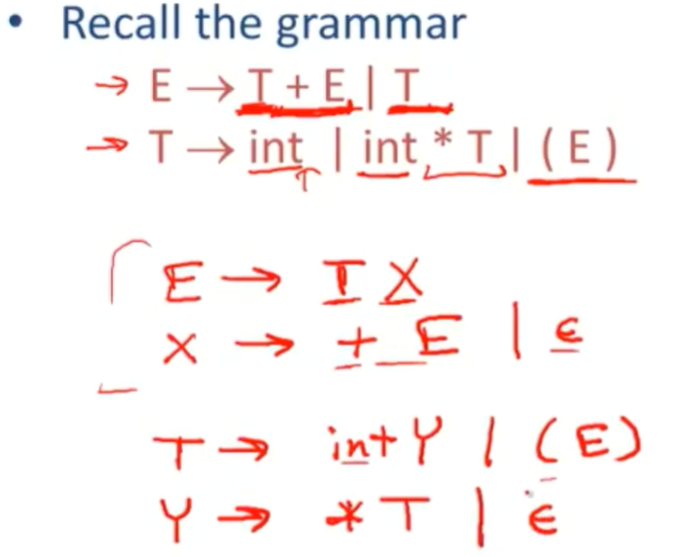 • Recall the grammar
→ E → T + E | T
→ T → int | int * T | ( E )
E → T X
X → + E | ε
T → int Y | ( E )
Y → * T | ε